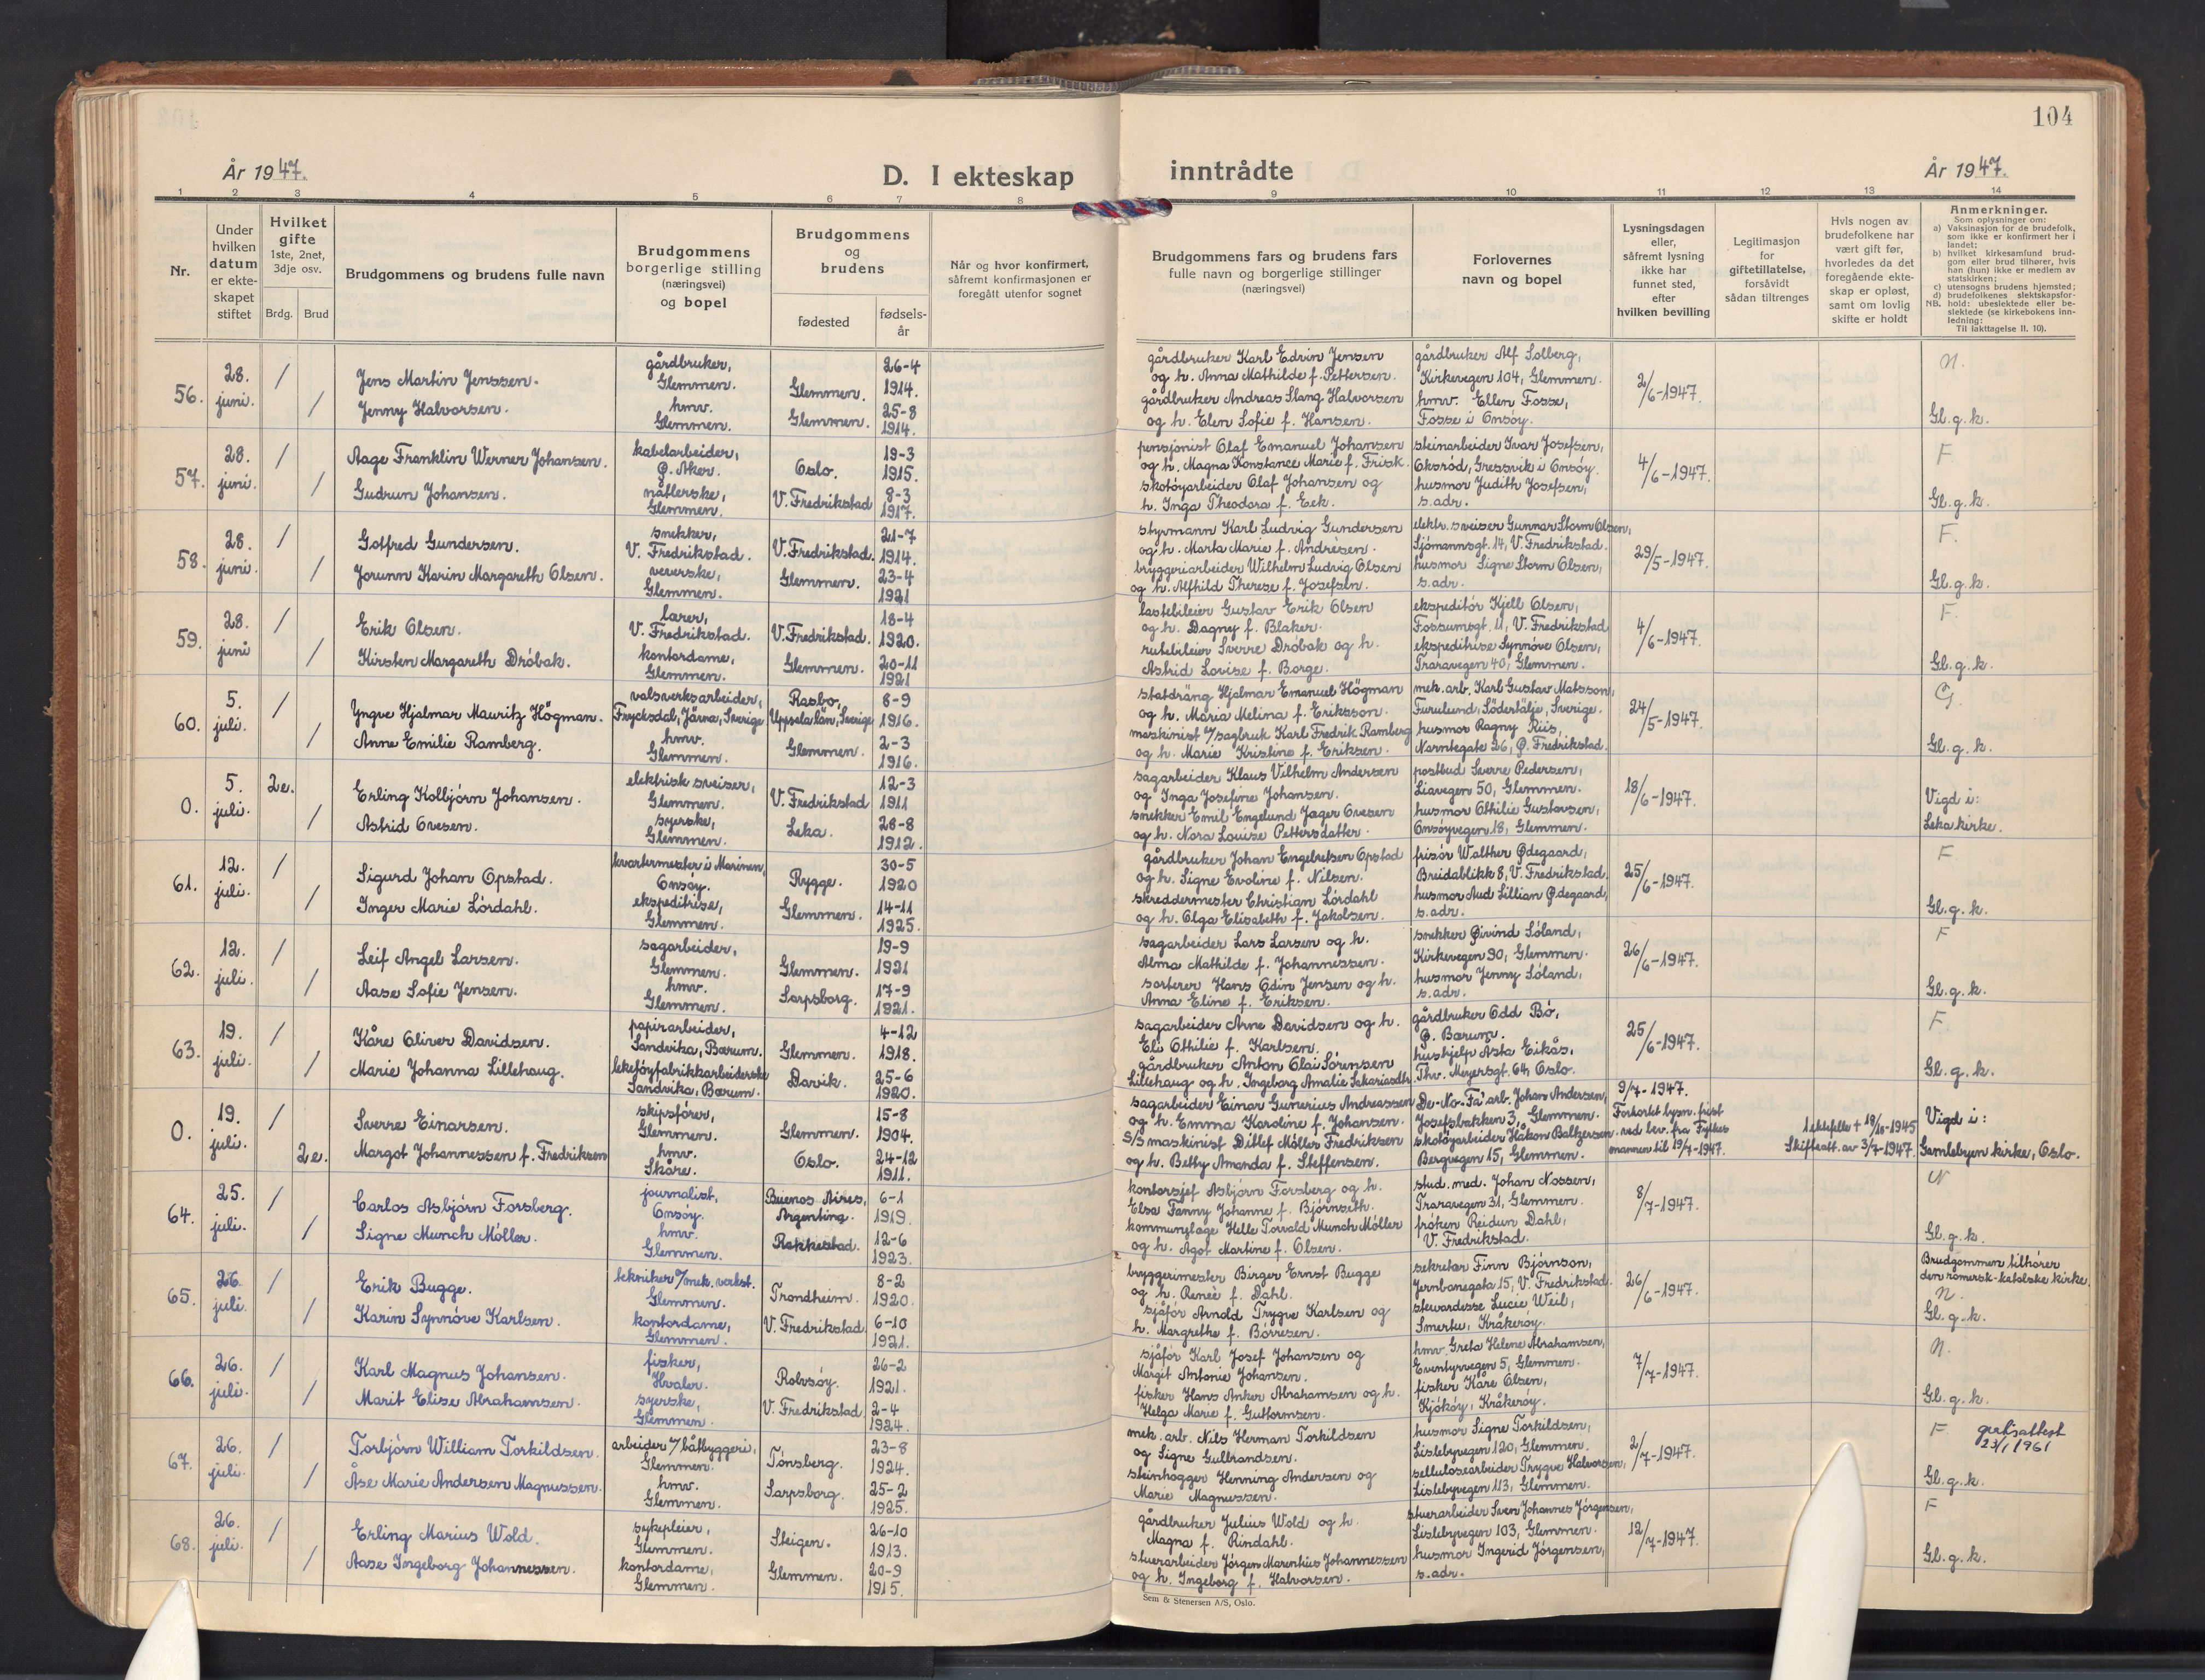 104
År 1947.
D. I ekteskap inntrådte
År 1947.
1 2 3 4 5 6 7 8 9 10 11 12 13 14
Nr.
Under hvilken datum er ekte-skapet stiftet
Hvilket gifte 1ste, 2net, 3dje osv.
Brdg. Brud
Brudgommens og brudens fulle navn
Brudgommens borgerlige stilling (næringsvei) og bopel
Brudgommens og brudens
fødested
fødsels-år
Når og hvor konfirmert, såfremt konfirmasjonen er foregått utenfor sognet
Brudgommens fars og brudens fars fulle navn og borgerlige stillinger (næringsvei)
Forlovernes navn og bopel
Lysningsdagen eller, såfremt lysning ikke har funnet sted, efter hvilken bevilling
Legitimasjon for giftetillatelse, forsåvidt sådan tiltrenges
Hvis nogen av brudefolkene har vært gift før, hvorledes da det foregående ekte-skap er opløst, samt om lovlig skifte er holdt
Anmerkninger.
Som oplysninger om:
a) Vaksinasjon for de brudefolk, som ikke er konfirmert her i landet;
b) hvilket kirkesamfund brud-gom eller brud tilhører, hvis han (hun) ikke er medlem av statskirken;
c) utensogns brudens hjemsted;
d) brudefolkenes slektskapsfor-hold: ubeslektede eller be-slektede (se kirkebokens inn-ledning:
NB. Til iakttagelse II. 10).
56. 28. juni. / /
Jens Martin Jenssen.
Jenny Halvorsen.
gårdbruker, Glemmen.
hmv. Glemmen.
Glemmen. 26-4 1914.
Glemmen. 25-8 1914.
gårdbruker Karl Edvin Jensen
og h. Anna Mathilde f. Pettersen.
gårdbruker Andreas Stang Halvorsen
og h. Elen Sofie f. Hansen.
gårdbruker Alf Solberg,
Kirkevegen 104, Glemmen.
hmv. Ellen Fosse,
Fosse i Onsøy.
2/6-1947.
N.
Gl. g. k.
57. 28. juni. / /
Aage Franklin Werner Johansen.
Gudrun Johansen.
kabelarbeider, Ø. Aker.
nåtlerske, Glemmen.
Oslo. 19-3 1915.
V. Fredrikstad 8-3 1917.
pensjonist Olaf Emanuel Johansen
og h. Magna Konstance Marie f. Frisk.
skotøyarbeider Olaf Johansen og
h. Inga Theodora f. Eek.
steinarbeider Ivar Josefsen,
Oksrød, Gressvik i Onsøy.
husmor Judith Josefsen,
s. adr.
4/6-1947.
F
Gl. g. k.
58. 28. juni. / /
Gotfred Gundersen.
Jorunn Karin Margareth Olsen.
snekker, V. Fredrikstad.
veverske, Glemmen.
V. Fredrikstad. 21-7 1914.
Glemmen. 23-4 1921
styrmann Karl Ludvig Gundersen
og h. Marta Marie f. Andrèsen.
bryggeriarbeider Wilhelm Ludvig Olsen
og h. Alfhild Therese f. Josefsen.
elektr. sveiser Gunnar Storm Olsen,
Sjømannsgt. 14, V. Fredrikstad.
husmor Signe Storm Olsen,
s. adr.
29/5-1947.
F.
Gl. g. k.
59. 28. juni / /
Erik Olsen.
Kirsten Margareth Drøbak.
lærer, V. Fredrikstad.
kontordame, Glemmen.
V. Fredrikstad. 18-4 1920.
Glemmen. 20-11 1921
lastebileier Gustav Erik Olsen
og h. Dagny f. Blaker.
rutebileier Sverre Drøbak og h.
Astrid Lovise f. Borge.
ekspeditør Kjell Olsen,
Fossumsgt. 11, V. Fredrikstad
ekspeditrise Synnøve Olsen,
Traravegen 40, Glemmen.
4/6-1947.
F.
Gl. g. k.
60. 5. juli. / /
Yngve Hjalmar Mauritz Högman.
Anne Emilie Ramberg.
valsverksarbeider, Frycksdal, Järna, Sverige
hmv. Glemmen.
Rasbo, Uppsala län, Sverige 8-9 1916.
Glemmen. 2-3 1916.
statdräng Hjalmar Emanuel Högman
og h. Maria Melina f. Eriksson.
maskinist v/sagbruk Karl Fredrik Ramberg
og h. Marie Kristine f. Eriksen.
mek. arb. Karl Gustav Matsson,
Furulund, Södertälje, Sverige.
husmor Ragny Riis,
Narntegate 26, Ø. Fredrikstad.
24/5-1947.
G.
Gl. g. k.
0. 5. juli. 2e. /
Erling Kolbjørn Johansen.
Astrid Ovesen.
elektrisk sveiser, Glemmen.
syerske, Glemmen.
V. Fredrikstad 12-3 1911
Leka. 28-8 1912.
sagarbeider Klaus Vilhelm Andersen
og Inga Josefine Johansen.
snekker Emil Engelund Jager Ovesen
og h. Nora Louise Pettersdatter.
postbud Sverre Pedersen,
Liavegen 50, Glemmen.
husmor Othilie Gustavsen,
Onsøyvegen 18, Glemmen.
18/6-1947.
Vigd i:
Leka kirke.
61. 12. juli. / /
Sigurd Johan Opstad.
Inger Marie Lørdahl.
kvartermester i Marinen, Onsøy.
ekspeditrise, Glemmen.
Rygge. 30-5 1920
Glemmen. 14-11 1925.
gårdbruker Johan Engelretsen Opstad
og h. Signe Evoline f. Nilsen.
skreddermester Christian Lørdahl
og h. Olga Elisabeth f. Jakobsen.
frisør Walther Ødegaard,
Breidablikk 8, V. Fredrikstad.
husmor Aud Lillian Ødegaard,
s. adr.
25/6-1947.
F
Gl. g. k.
62. 12. juli. / /
Leif Angel Larsen.
Aase Sofie Jensen.
sagarbeider, Glemmen.
hmv. Glemmen.
Glemmen. 19-9 1921
Sarpsborg. 17-9 1921.
sagarbeider Lars Larsen og h.
Alma Mathilde f. Johannessen.
sorterer Hans Odin Jensen og h.
Anna Eline f. Eriksen.
snekker Øivind Søland,
Kirkevegen 90, Glemmen.
husmor Jenny Søland,
s. adr.
26/6-1947.
F
Gl. g. k.
63. 19. juli. / /
Kåre Oliver Davidsen.
Marie Johanna Lillehaug.
papirarbeider, Sandvika, Bærum.
leketøyfabrikkarbeiderske Sandvika, Bærum.
Glemmen. 4-12 1918.
Davik. 25-6 1920.
sagarbeider Arne Davidsen og h.
Eli Othilie f. Karlsen.
gårdbruker Anton Olai Sørensen
Lillehaug og h. Ingeborg Amalie Sakariasdtr
gårdbruker Odd Bø,
Ø. Bærum.
hushjelp Asta Eikås,
Thv. Meyersgt. 64, Oslo.
25/6-1947.
F.
Gl. g. k.
0. 19. juli. / 2e.
Sverre Einarsen.
Margot Johannessen f. Fredriksen
skipsfører, Glemmen.
hmv. Skåre.
Glemmen. 15-8 1904.
Oslo. 24-12 1911.
sagarbeider Einar Gunerius Andreassen
og h. Emma Karoline f. Johansen.
S/S maskinist Ditlef Møller Fredriksen
og h. Betty Amanda f. Steffensen.
De-No-Fa' arb. Johan Andersen,
Josefsbakken 3, Glemmen.
skotøyarbeider Håkon Baltzersen
Bergvegen 15, Glemmen.
9/7-1947.
Forkortet lysn. frist
ved bev. fra Fylkes
mannen til 19/7-1947.
1. ektefelle + 18/10-1945
Skifteatt. av 3/7-1947.
Vigd i:
Gamlebyen kirke, Oslo.
64. 25. juli. / /
Carlos Asbjørn Forsberg.
Signe Munch Møller.
journalist, Onsøy.
hmv. Glemmen.
Buenos Aires, Argentina. 6-1 1919.
Rakkestad. 12-6 1923.
kontorsjef Asbjørn Forsberg og h.
Elsa Fanny Johanne f. Bjørnseth.
kommunelage Helle Torvald Munch Møller
og h. Agot Martine f. Olsen.
stud. med. Johan Nossen,
Traravegen 31, Glemmen.
frøken Reidun Dahl,
V. Fredrikstad.
8/7-1947.
N
Gl. g. k.
65. 26. juli. / /
Erik Bugge.
Karin Synnöve Karlsen.
tekniker v/mek. verkst. Glemmen.
kontordame, Glemmen.
Trondheim. 8-2 1920.
V. Fredrikstad 6-10 1921.
bryggerimester Birger Ernst Bugge
og h. Reneè f. Dahl.
sjåfør Arnold Trygve Karlsen og
h. Margrethe f. Børresen.
sekretær Finn Bjørnson,
Jernbanegata 15, V. Fredrikstad.
stewardesse Lucie Weil,
Smertu, Kråkerøy.
26/6-1947.
Brudgommen tilhører
den romersk-katolske kirke.
N.
Gl. g. k.
66. 26. juli. / /
Karl Magnus Johansen.
Marit Elise Abrahamsen.
fisker, Hvaler.
syerske, Glemmen.
Rolvsøy. 26-2 1921.
V. Fredrikstad 2-4 1924.
sjåfør Karl Josef Johansen og
Margit Antonie Johansen.
fisker Hans Anker Abrahamsen og h.
Helga Marie f. Guttormsen.
hmv. Greta Helene Abrahamsen,
Eventyrvegen 5, Glemmen.
fisker Kåre Olsen,
Kjøkøy, Kråkerøy.
7/7-1947.
N.
Gl. g. k.
67. 26. juli. / /
Torbjørn William Torkildsen.
Åse Marie Andersen Magnussen.
arbeider v/båtbyggeri, Glemmen.
hmv. Glemmen.
Tønsberg. 23-8 1924.
Sarpsborg. 25-2 1925.
mek. arb. Nils Herman Torkildsen
og Signe Gulbrandsen.
steinhogger Henning Andersen og
Marie Magnussen.
husmor Signe Torkildsen,
Lislebyvegen 120, Glemmen.
cellulosearbeider Trygve Halvorsen,
Lislebyvegen 113, Glemmen.
2/7-1947.
F gratisattest
23/1 1961
Gl. g. k.
68. 26. juli. / /
Erling Marius Wold.
Aase Ingeborg Johannessen.
sykepleier, Glemmen.
kontordame, Glemmen.
Steigen. 26-10 1913.
Glemmen. 20-9 1915.
gårdbruker Julius Wold og h.
Magna f. Rindahl.
stuerarbeider Jørgen Marentius Johannessen
og h. Ingeborg f. Halvorsen.
stuerarbeider Sven Johannes Jørgensen,
Lislebyvegen 103, Glemmen.
husmor Ingerid Jørgensen,
s. adr.
12/7-1947.
F
Gl. g. k.
Sem & Stenersen A/S, Oslo.